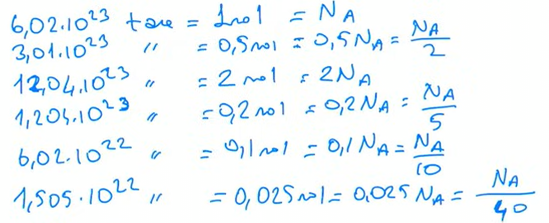 6,02.10²³ tane = 1mol = N_A
3,01.10²³ " = 0,5mol = 0,5N_A = N_A/2
12,04.10²³ " = 2mol = 2N_A
1,204.10²³ " = 0,2mol = 0,2N_A = N_A/5
6,02.10²² " = 0,1mol = 0,1N_A = N_A/10
1,505.10²² " = 0,025mol = 0,025N_A = N_A/40